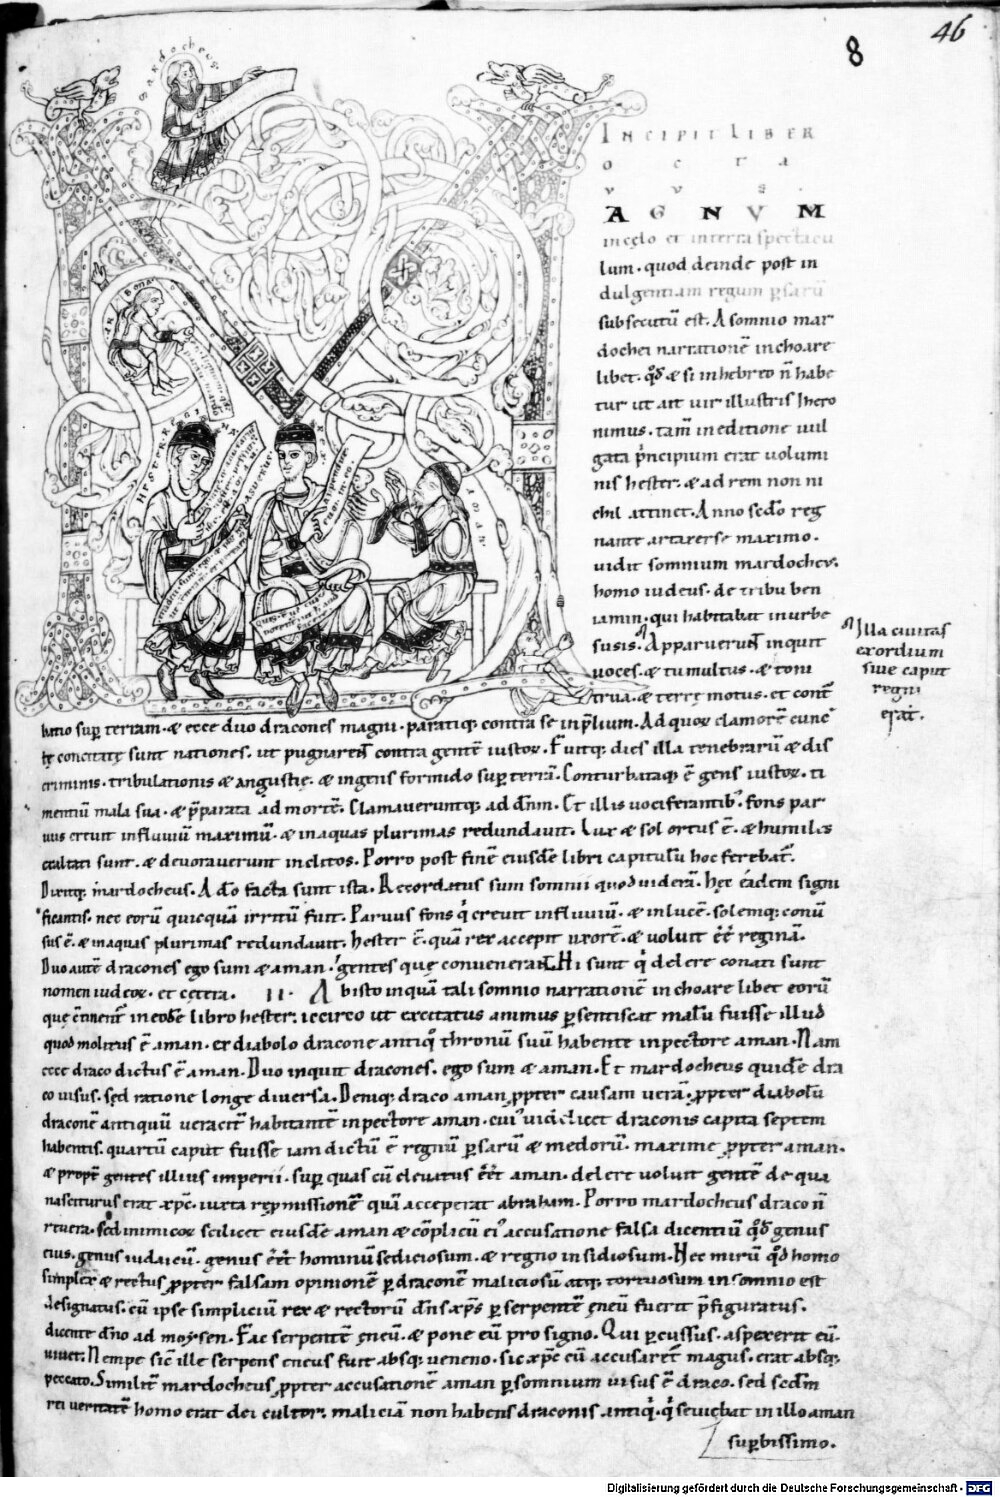 46
8
mardocheus
INCIPIT LIBER
octa
vus.
AGNUM
in cęlo et in terra spectacu
lum. quod deinde post in
dulgentiam regum p̱sarū
subsecutū est. A somnio mar
dochei narrationē inchoare
libet. qđ & si in hebreo n̄ habe
tur ut ait uir illustris Ihero
nimus. tam̄ in editione uul
gata p̄ncipium erat uolumi
nis hester. & ad rem non ni
chil attinet. Anno scđo reg
nante artaxerse maximo.
uidit somnium mardocheus.
homo iudeus. de tribu ben
iamin. qui habitabat in urbe
susis. Apparuerunt inquit
uoces. & tumultus. & toni
trua. & terrę motus. et cont̄
Illa ciuitas
exordium
siue caput
regni
erat.
HESTER REGINA
REX
batio sup̱ terram. & ecce duo dracones magni. paratiq; contra se in p̄lium. Ad quoꝝ clamorē cunc
tę concitatę sunt nationes. ut pugnarent contra gentē iustoꝝ. Fuitq; dies illa tenebrarū & dis
criminis. tribulationis & angustię. & ingens formido sup̱ terrā. Conturbataq; ē gens iustoꝝ. ti
mentiū mala sua. & p̄parata ad mortē. Clamaueruntq; ad dn̄m. Et illis uociferantib; fons par
uus creuit in fluuiū maximū. & in aquas plurimas redundauit. Lux & sol ortus ē. & humiles
exaltati sunt. & deuorauerunt inclitos. Porro post finē eiusdē libri capitulū hoc ferebat̄.
Dixitq; mardocheus. A dō facta sunt ista. Recordatus sum somnii quod uiderā. hęc eadem signi
ficantis. nec eorū quicquā irritū fuit. Paruus fons q̇ creuit in fluuiū. & in lucē. solemq; conū
sus ē. & in aquas plurimas redundauit. hester ē. quā rex accepit uxorē. & uoluit ēē reginā.
Duo autē dracones ego sum & aman. gentes que conuenerant. Hi sunt q̇ delere conati sunt
nomen iudeoꝝ. et cętera. II. Ab isto inquā tali somnio narrationē inchoare libet eorū
que ꝯtinent̄ in eodē libro hester. iccirco ut excitatus animus p̱sentiscat malū fuisse illud
quod molitus ē aman. ex diabolo dracone antiq̇ thronū suū habente in pectore aman. Nam
ecce draco dictus ē aman. Duo inquit dracones. ego sum & aman. Et mardocheus quidē dra
co uisus. sed ratione longe diuersa. Deniq; draco aman p̱pter causam uerā. p̱pter diabolū
draconē antiquū ueracit̄ habitantē in pectore aman. cui' uidelicet draconis capita septem
habentis. quartū caput fuisse iam dictū ē regnū p̱sarū & medorū. maxime p̱pter aman.
& propt̄ gentes illius imperii. sup̱ quas cū eleuatus ēēt aman. delere uoluit gentē de qua
nasciturus erat xp̄c. iuxta rep̱missionē quā acceperat abraham. Porro mardocheus draco n̄
re uera. sed inimicoꝝ scilicet eiusdē aman & cōplicū ei' accusatione falsa dicentiū qđ genus
eius. genus iudaicū. genus ēēt hominū sediciosum. & regno insidiosum. Nec mirū qđ homo
simplex & rectus p̱pter falsam opinionē p̱ draconē maliciosū atq; tortuosum in somnio est
designatus. cū ipse simpliciū rex & rectorū dn̄s xp̄s p̱ serpentē ęneū fuerit p̄figuratus.
dicente dn̄o ad moysen. Fac serpentē ęneū. & pone eū pro signo. Qui p̱cussus. aspexerit eū.
uiuet. Nempe sic ille serpens eneus fuit absq; ueneno. sic xp̄c cū accusaret̄ magus. erat absq;
peccato. Similit̄ mardocheus p̱pter accusationē aman p̱ somnium uisus ē draco. sed scđm
rei ueritatē homo erat dei cultor. maliciā non habens draconis antiq̇. q̇ seuiebat in illo aman
sup̱bissimo.
Digitalisierung gefördert durch die Deutsche Forschungsgemeinschaft - DFG